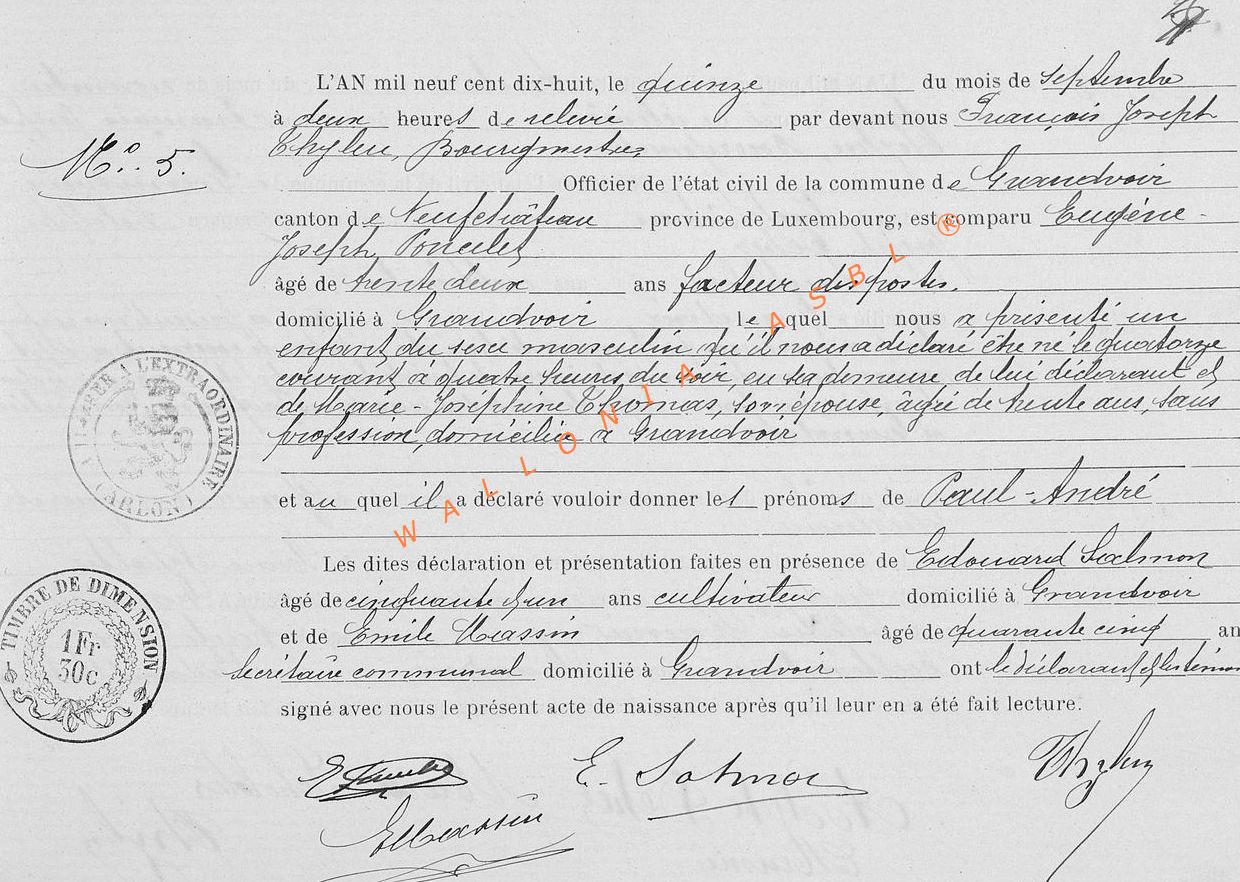 L'AN mil neuf cent dix-huit, le quinze du mois de septembre
à deux heures de relevée par devant nous François Joseph
Bourgmestre,
N° 5.
Officier de l'état civil de la commune de Grandvoir
canton de Neufchâteau province de Luxembourg, est comparu Eugène-
Joseph Poncelet
âgé de trente deux ans facteur des postes.
domicilié à Grandvoir lequel nous a présenté un
enfant du sexe masculin qu'il nous a déclaré être né le quatorze
courant à quatre heures du soir, en sa demeure de lui déclarant et
de Marie-Joséphine Thomas, son épouse, âgée de trente ans, sans
profession, domiciliée à Grandvoir
et auquel il a déclaré vouloir donner les prénoms de Paul-André
Les dites déclaration et présentation faites en présence de Edouard Salmon
âgé de cinquante et un ans cultivateur domicilié à Grandvoir
et de Emile Massin âgé de quarante cinq an
secrétaire communal domicilié à Grandvoir ont le déclarant et les témoins
signé avec nous le présent acte de naissance après qu'il leur en a été fait lecture.
E. Salmon
EMassin
A L'EXTRAORDINAIRE
(ARLON)
TIMBRE DE DIMENSION
1Fr
30c
WALLONIA ASBL ®